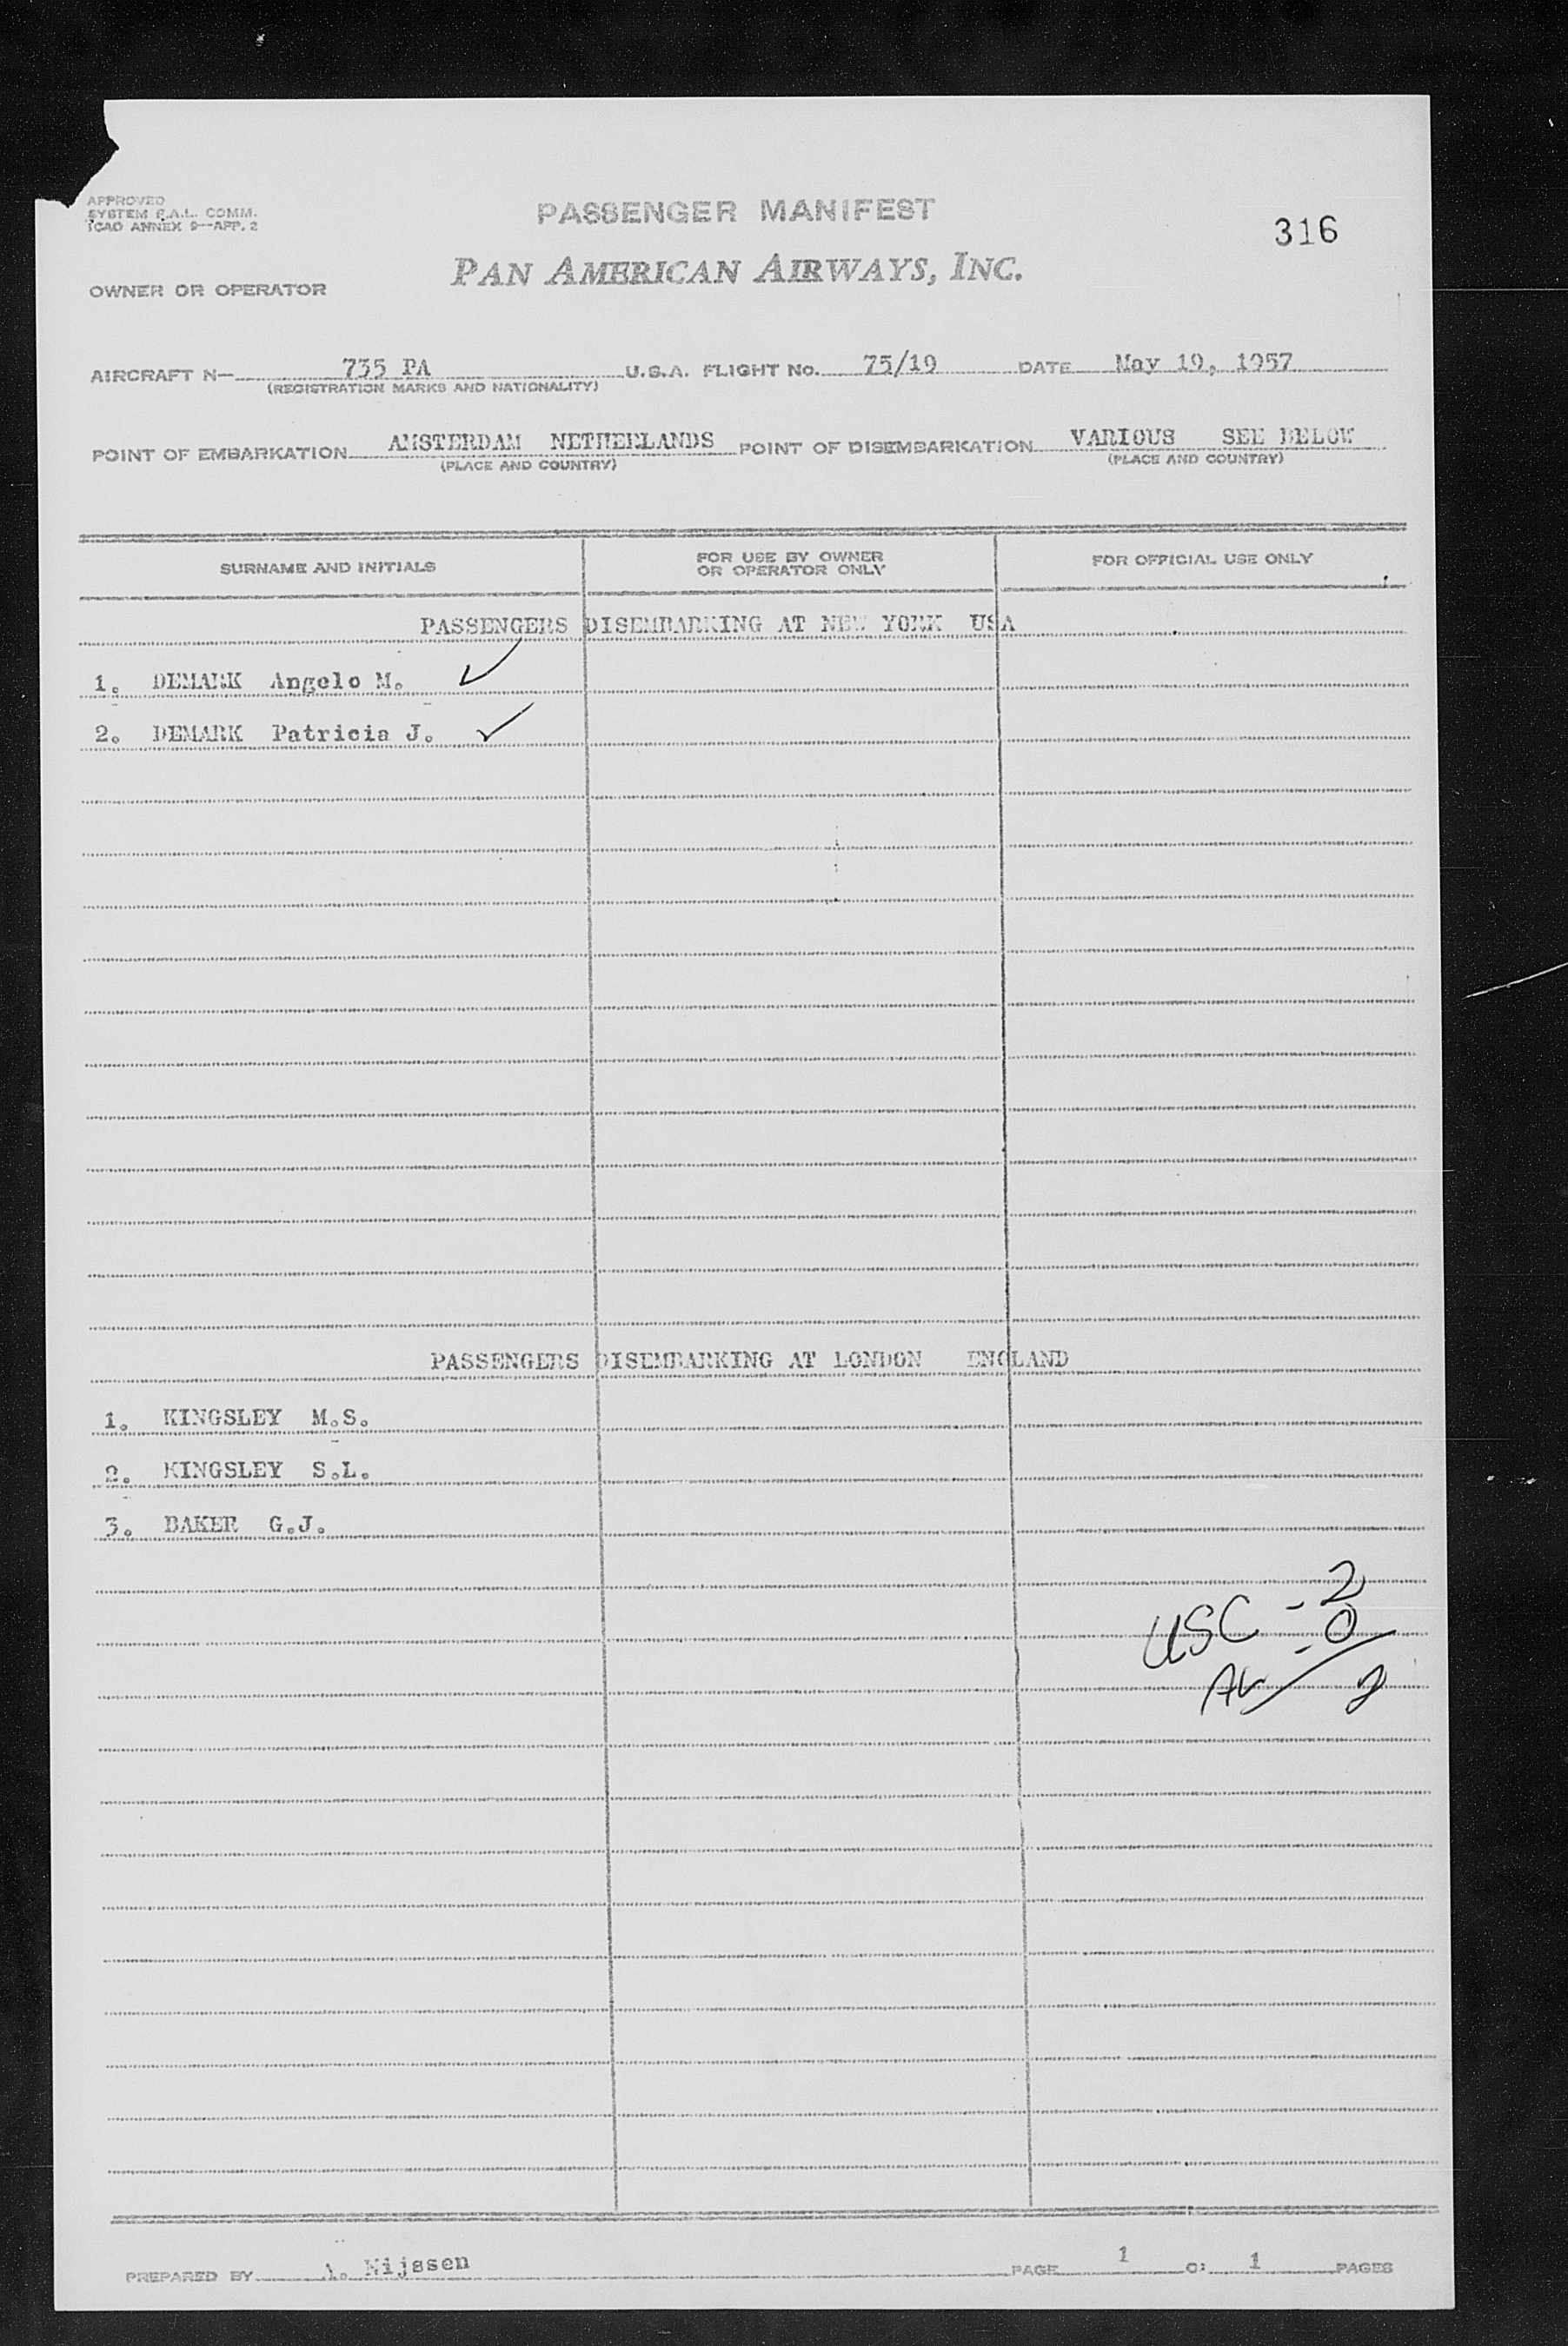 APPROVED
SYSTEM F.A.L. COMM.
ICAO ANNEX 9—APP. 2
PASSENGER MANIFEST
316
PAN AMERICAN AIRWAYS, INC.
OWNER OR OPERATOR
AIRCRAFT N— 735 PA U.S.A. FLIGHT No. 75/19 DATE May 19, 1957
(REGISTRATION MARKS AND NATIONALITY)
POINT OF EMBARKATION AMSTERDAM NETHERLANDS POINT OF DISEMBARKATION VARIOUS SEE BELOW
(PLACE AND COUNTRY) (PLACE AND COUNTRY)
SURNAME AND INITIALS FOR USE BY OWNER OR OPERATOR ONLY FOR OFFICIAL USE ONLY
PASSENGERS DISEMBARKING AT NEW YORK USA
1. DEMARK Angelo M.
2. DEMARK Patricia J.
PASSENGERS DISEMBARKING AT LONDON ENGLAND
1. KINGSLEY M.S.
2. KINGSLEY S.L.
3. BAKER G.J.
USC - 2
- 0
2
PREPARED BY A. Nijssen PAGE 1 OF 1 PAGES